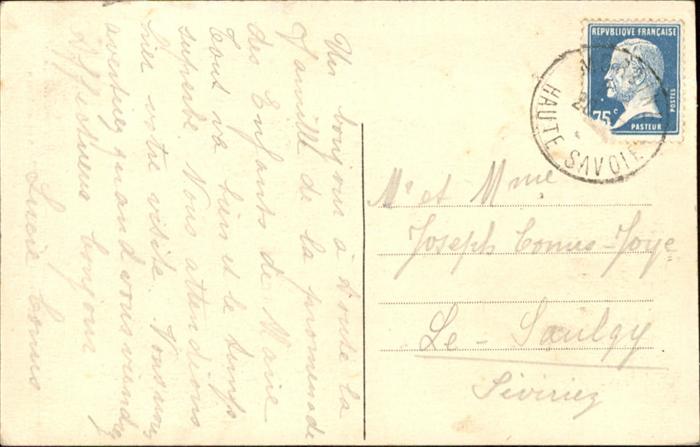 Un bonjour à toute la
famille de la promenade
des Enfants de Marie
Tout va bien et le temps
superbe Nous attendions
hier votre visite. Vous nous
avertirez quand vous viendrez
Affectueux bonjour
Lucie Comus
RÉPUBLIQUE FRANÇAISE
POSTES
75c
PASTEUR
HAUTE SAVOIE
Mr et Mme
Joseph Comus-Joye
Le-Saulgy
Siviriez